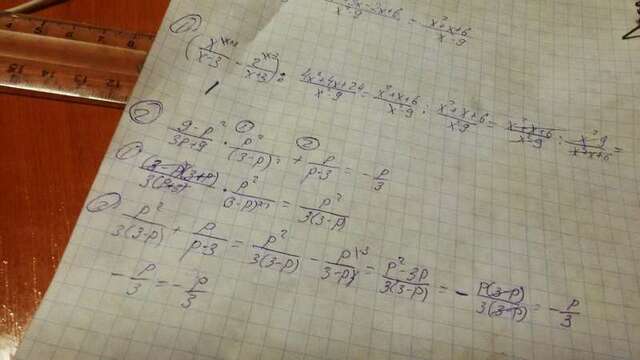 x²+x+6/x²-9
1) (x/x-3 - 2/x+3) : 4x²+4x+24/x²-9 = x²+x+6/x²-9 : x²+x+6/x²-9 = x²+x+6/x²-9 : x²-9/x²+x+6 =
2) 9-p²/3p+9 · p²/(3-p)² + p/p-3 = -p/3
1) (3-p)(3+p)/3(p+3) · p²/(3-p)² = p²/3(3-p)
2) p²/3(3-p) + p/p-3 = p²/3(3-p) - p\3/3-p = p²-3p/3(3-p) = -p(3-p)/3(3-p) = -p/3
-p/3 = -p/3